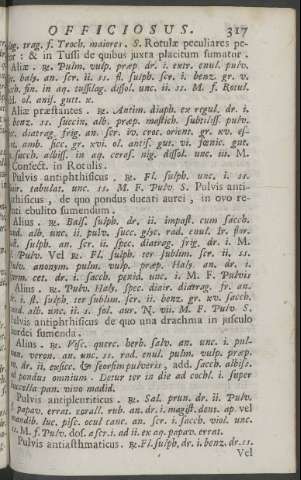 OFFICIOSUS. 317
trag. f. Troch. maiores. S. Rotulæ peculiares pe-
: & in Tussi de quibus juxta placitum sumatur.
Aliæ ℞. Pulm. vulp. præp. dr. i. extr. enul. pulv.
haly. an. scr. ii. ss. fl. sulph. scr. i. benz. gr. v.
fin. in aq. tussilag. dissol. unc. ii. ss. M. f. Rotul.
ol. anis. gutt. x.
Aliæ præstantes. ℞. Antim. diaph. ex regul. dr. i.
benz. ss. succin. alb. præp. mastich. subtiliss. pulv.
diatrag. frig. an. scr. iv. croc. orient. gr. xv. es-
amb. sicc. gr. xvi. ol. antis. gut. vi. fœnic. gut.
sacch. albiss. in aq. ceras. nig. dissol. unc. iii. M.
Confect. in Rotulis.
Pulvis antiphthisicus, ℞. Fl. sulph. unc. i. ss.
tabulat. unc. ss. M. F. Pulv. S. Pulvis anti-
thisicus, de quo pondus ducati aurei, in ovo re-
ti ebulito sumendum.
Alius. ℞. Bals. sulph. dr. ii. impast. cum sacch.
alb. unc. ii. pulv. succ. glyc. rad. enul. Ir. flor.
sulph. an. scr. ii. spec. diatrag. frig. dr. i. M.
Pulv. Vel ℞. Fl. sulph. ter sublim. scr. ii. ss.
anonym. pulm. vulp. præp. Haly. an. dr. i.
cet. dr. i. sacch. penid. unc. i. M. F. Pulvis
Alius. ℞. Pulv. Haly. spec. diair. diatrag. fr. an.
i. fl. sulph. ter sublim. scr. ii. benz. gr. xv. sacch.
alb. unc. ii. s. fol. aur. N. vii. M. F. Pulv. S.
Pulvis antiphthisicus de quo una drachma in jusculo
sumenda.
Alius. ℞. Visc. querc. herb. salv. an. unc. i. pul-
veron. an. unc. ss. rad. enul. pulm. vulp. præp.
dr. ii, exsicc. & seorsim pulveris, add. sacch. albiss.
pondus omnium. Detur ter in die ad cochl. i. super
buccella pan. vino madid.
Pulvis antipleuriticus. ℞. Sal. prun. dr. ii. Pulv.
papav. errat. corall. rub. an. dr. i. magist. dent. ap. vel
mandib. luc. pisc. ocul canc. an. scr. i. sacch. viol. unc.
M. f. Pulv. dos. a scr. i. ad ii. ex aq. papav. errat.
Pulvis antiasthmaticus. ℞. Fl. sulph, dr. i. benz. dr. ss.
Vel